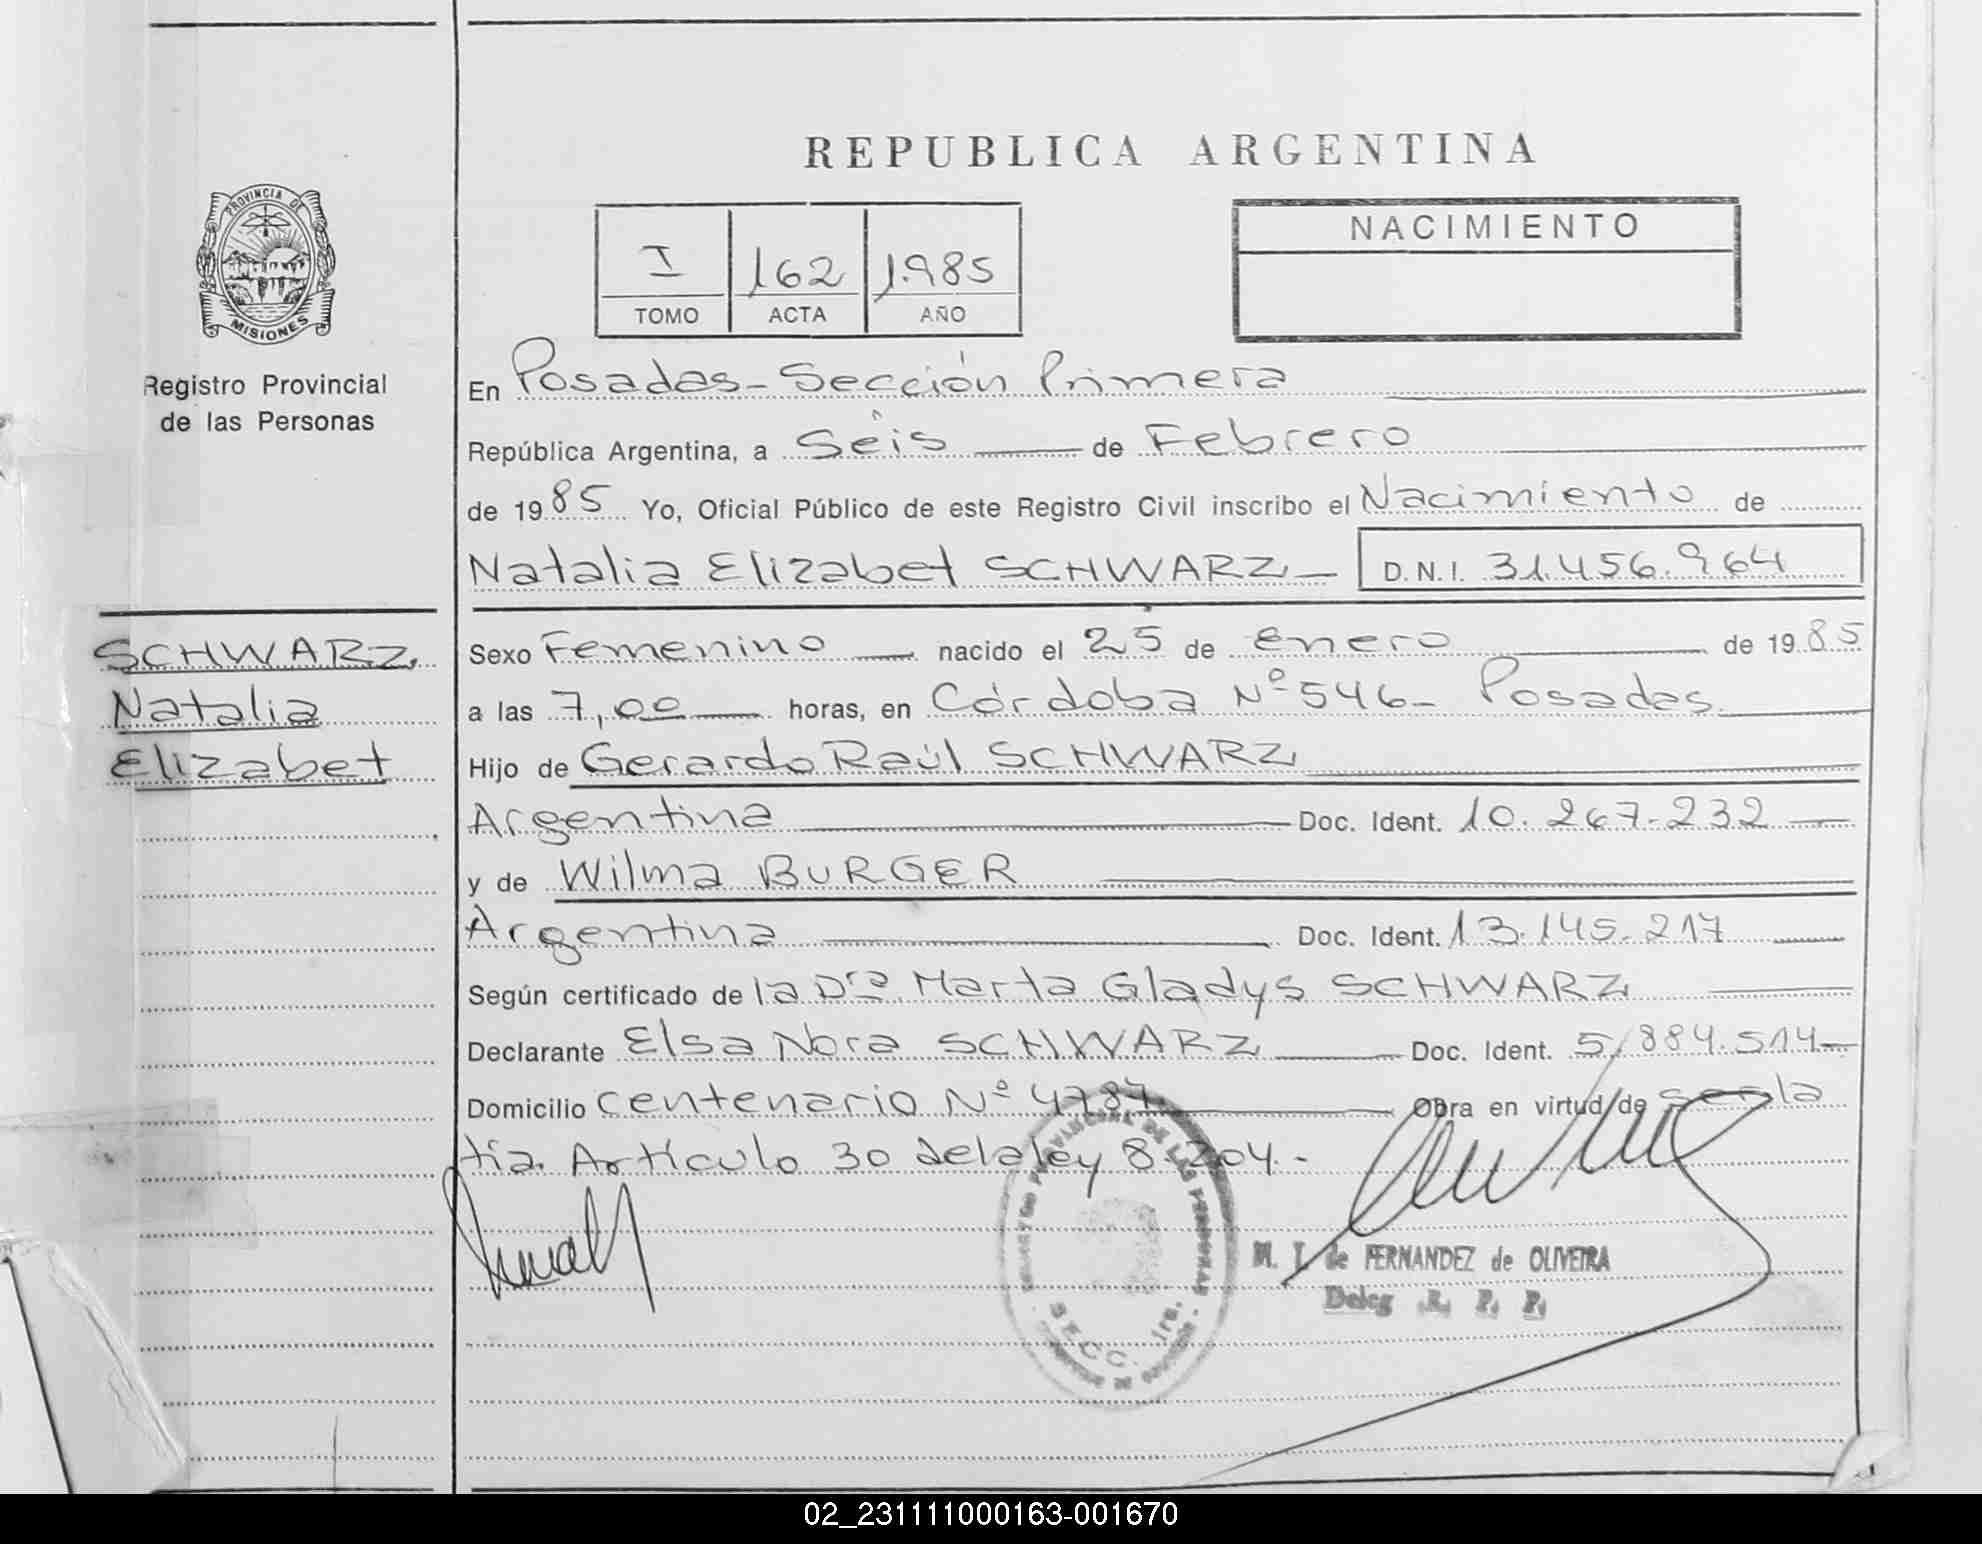 REPUBLICA ARGENTINA
PROVINCIA DE
MISIONES
Registro Provincial
de las Personas
I 162 1.985
TOMO ACTA AÑO
NACIMIENTO
En Posadas - Sección Primera
República Argentina, a Seis de Febrero
de 1985 Yo, Oficial Público de este Registro Civil inscribo el Nacimiento de
Natalia Elizabet SCHWARZ D.N.I. 31.456.964
SCHWARZ
Natalia
Elizabet
Sexo Femenino nacido el 25 de Enero de 1985
a las 7,00 horas, en Córdoba Nº 546 - Posadas.
Hijo de Gerardo Raúl SCHWARZ
Argentina Doc. Ident. 10.267.232
y de Wilma BURGER
Argentina Doc. Ident. 13.145.217
Según certificado de la Dra. Marta Gladys SCHWARZ
Declarante Elsa Nora SCHWARZ Doc. Ident. 5.884.514
Domicilio Centenario Nº 4787 Obra en virtud de
tía. Artículo 30 de la ley 8.204.-
PROVINCIAL DE LAS PERSONAS
SECC. 1ra.
M. T. de FERNANDEZ de OLIVEIRA
Deleg. R. P. P.
02_231111000163-001670